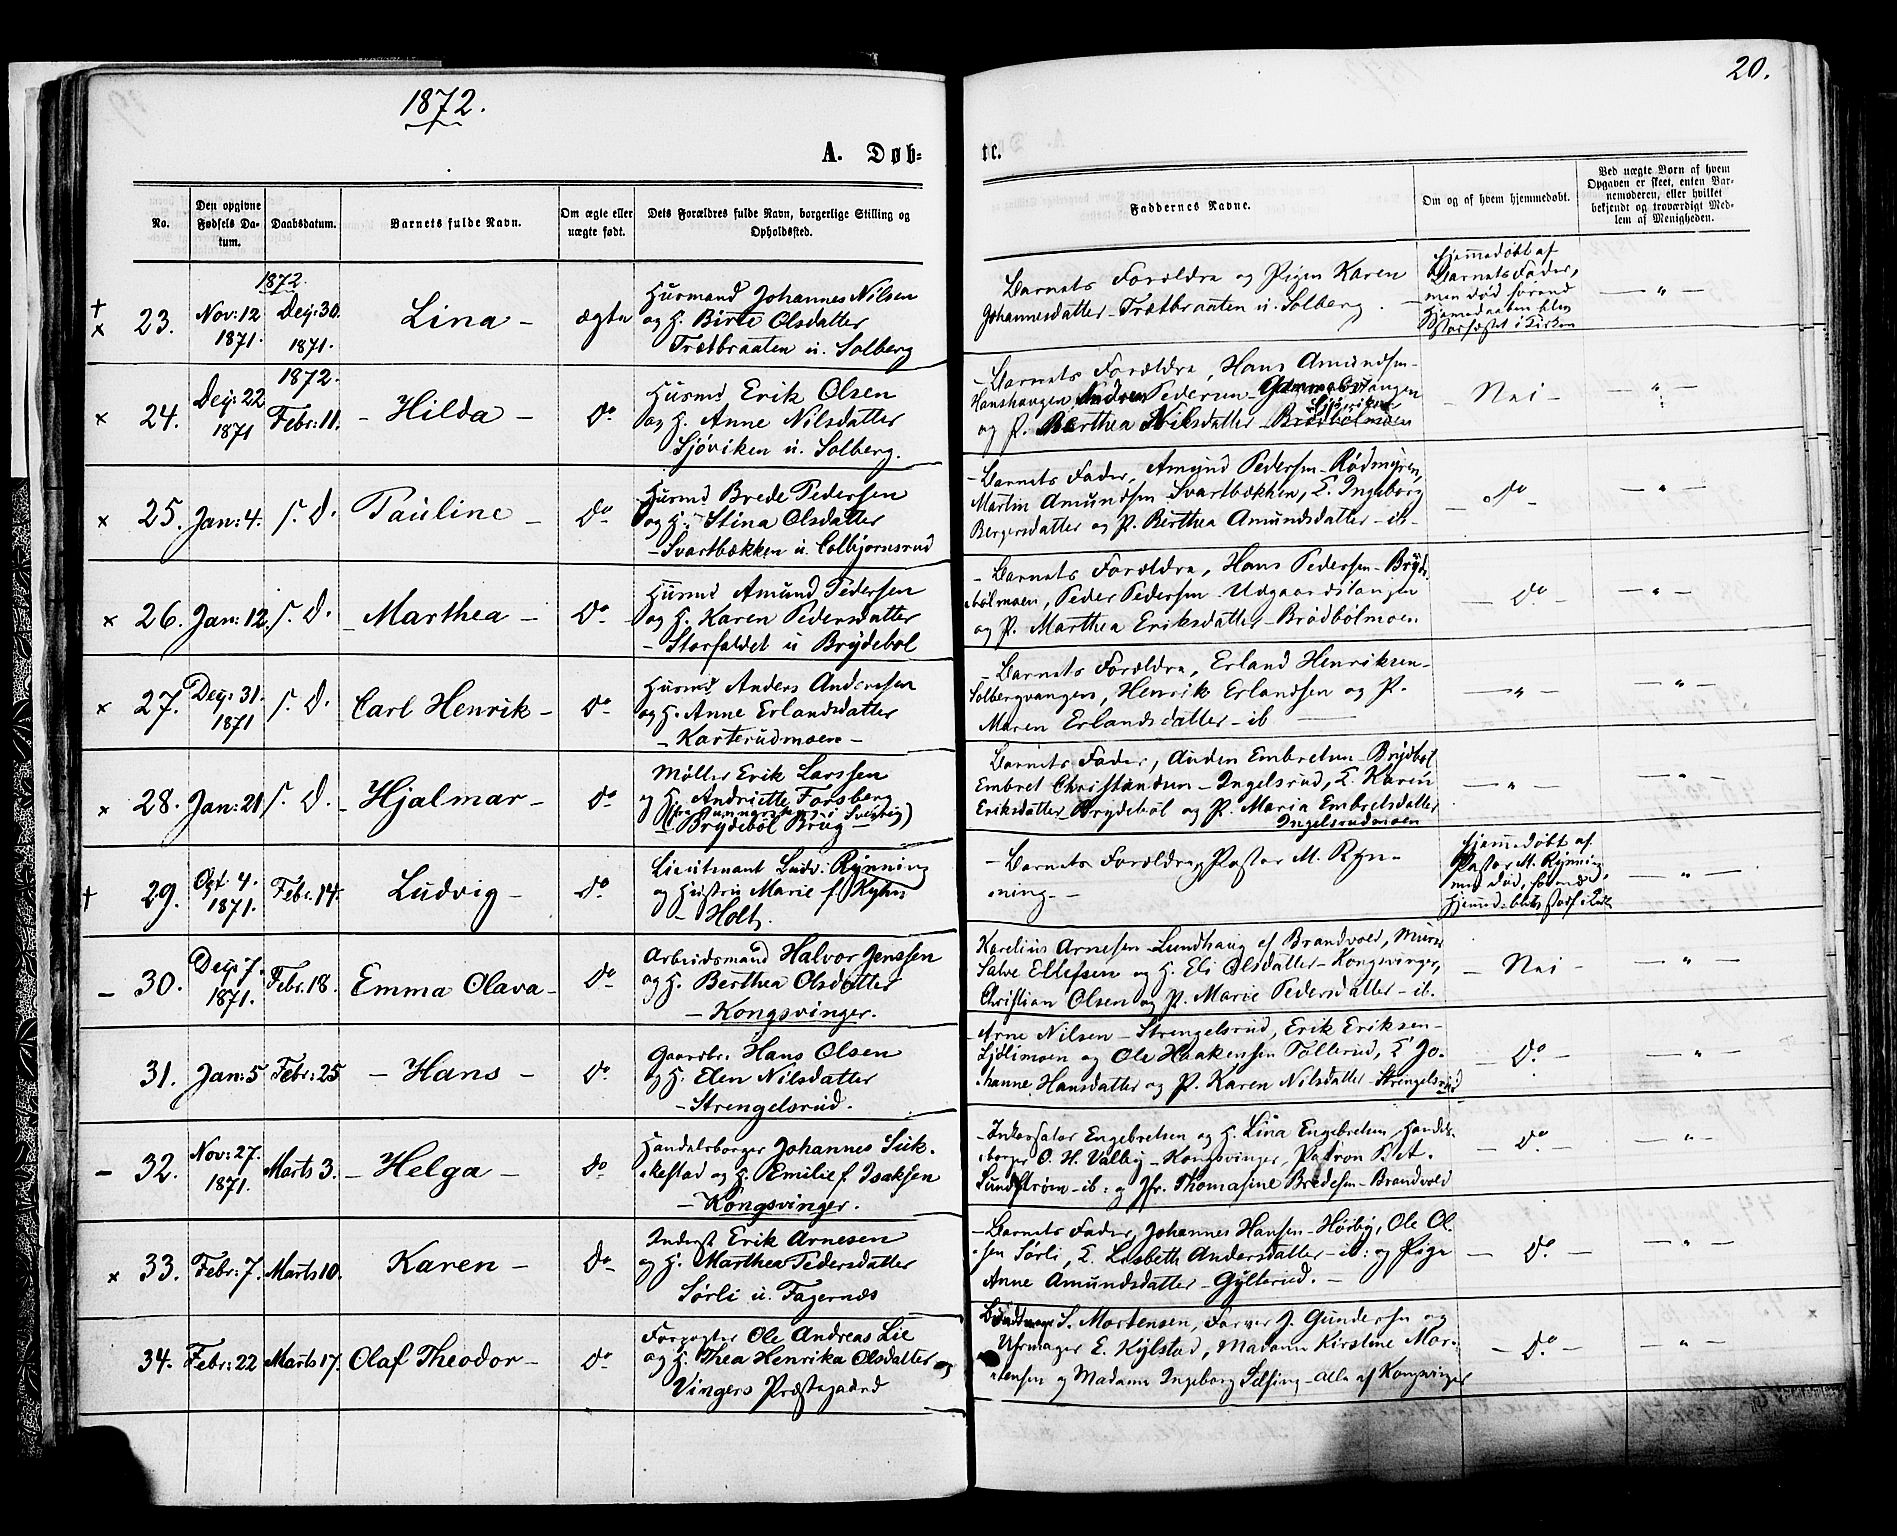 1872.
20.
A. Døb-
te.
No.
Den opgivne Fødsels Da-
tum.
Daabsdatum.
Barnets fulde Navn.
Om ægte eller
uægte født.
Dets Forældres fulde Navn, borgerlige Stilling og
Opholdssted.
Faddernes Navne.
Om og af hvem hjemmedøbt.
Ved uægte Børn af hvem
Opgaven er skeet, enten Bar-
nemoderen, eller hvilket
bekjendt og troværdigt Med-
lem af Menigheden.
1872.
23. Nov: 12 1871. Dez: 30. 1871. Lina - ægte
Husmand Johannes Nilsen
og H. Birte Olsdatter
Trætbraaten u. Solberg
Barnets Forældre og Pigen Karen
Johannesdatter - Trætbraaten u. Solberg.
Hjemmedøbt af
Barnets Fader,
men død førend
Hjemmedaaben blev
stadfæstet i Kirken
— " —
1872.
24. Dez: 22 1871 Febr: 11. - Hilda - do
Husmd Erik Olsen
og H. Anne Nilsdatter
Sjøviken u. Solberg.
- Barnets Forældre, Hans Amundsen -
Hanshaugen, Andreas Pedersen - Gammelvangen
Sjøviken
og P. Marthea Nilsdatter - Brødbølmoen
- Nei -
— " —
25. Jan: 4. s. D. Pauline - do
Husmd Brede Pedersen
og H. Stina Olsdatter
- Svartbækken u. Colbjørnsrud
- Barnets Fader, Amund Pedersen - Rødmyren,
Martin Amundsen Svartbækken, E. Ingeborg
Bergersdatter og P. Berthea Amundsdatter - ib -
- do -
— " —
26. Jan: 12. s. D. - Marthea - do
Husmd Amund Pedersen
og H. Karen Pedersdatter
- Storfaldet u Brydebøl
- Barnets Forældre, Hans Pedersen - Bryde-
bølmoen, Peder Pedersen Udgaardstangen
og P. Marthea Eriksdatter - Brødbølmoen
- do -
— " —
27. Dez: 31. 1871 s. D. Carl Henrik - do
Husmd Anders Andersen
og H. Anne Erlandsdatter
- Karterudmoen -
- Barnets Forældre, Erland Henriksen -
Solbergvangen, Henrik Erlandsen og P.
Maren Erlandsdatter - ib —
— " —
— " —
28. Jan: 21 s. D. - Hjalmar - do
Møller Erik Larssen
og H. Andriette Forsberg
- Brydebøl Brug -
Barnets Fader, Auden Embretsen - Brydbøl
Embret Christiansen - Ingelsrud, E. Karen
Eriksdatter Brydebøl og P. Maria Embretsdatter
Ingelsrudmoen
— " —
— " —
29. Oct. 4. 1871. Febr. 14. Ludvig - do
Lieutenant Ludv. Rynning
og Hustru Marie f. Kyhn
- Holt.
- Barnets Forældre, Pastor M. Ryn-
ning. -
Hjemmedøbt af
Pastor M. Rynning
men død, førend
— " —
30. Dez: 7. 1871. Febr. 18. Emma Olava - do
Arbeidsmand Halvor Jenssen
og H. Berthea Olsdatter
- Kongsvinger.
Karelius Arnesen - Lundhaug af Brandvold, Murer
Salve Ellefsen og H. Eli Olsdatter - Kongsvinger,
Christian Olsen og P. Marie Pedersdatter - ib.
- Nei -
— " —
31. Jan: 5 Febr: 25 - Hans - do
Gaardbr. Hans Olsen
og H. Elen Nilsdatter
- Strengelsrud.
Arne Nilsen - Strengelsrud, Erik Eriksen -
Lidlimoen og Ole Haakensen Tollerud, E. Jo-
hanne Hansdatter og P. Karen Nilsdatter - Strengelsrud
- do -
— " —
32. Nov: 27. 1871. Marts 3. - Helga - do
Handelsborger Johannes Sik-
kestad og H. Emilie f. Isaksen
- Kongsvinger.
Engebretsen og H. Lina Engebretsen, Handels-
borger O. H. Valby - Kongsvinger, Patron
Sundstrøm - ib: og Jfr. Thomasine Bredesen - Brandvold
- do -
— " —
33. Febr: 7. Marts 10. Karen - do
Inderst Erik Arnesen
og H. Marthea Pedersdatter
Sørli u. Fagernæs
- Barnets Fader, Johannes Hansen - Hørby, Ole Ol-
sen Sørli, E. Lisbeth Andersdatter - ib: og Pige
Anne Amundsdatter - Gylterud. -
- do -
— " —
34. Febr: 22 Marts 17. Olaf Theodor - do
Forpagter Ole Andreas Lie
og H. Thea Henrika Olsdatter
Vingers Præstegaard
S. Mortensen, Farver J. Gundersen og
Uhrmager E. Kylstad, Madame Kirstine Mor-
tensen og Madame Ingeborg Selsing - alle af Kongsvinger
- do -
— " —